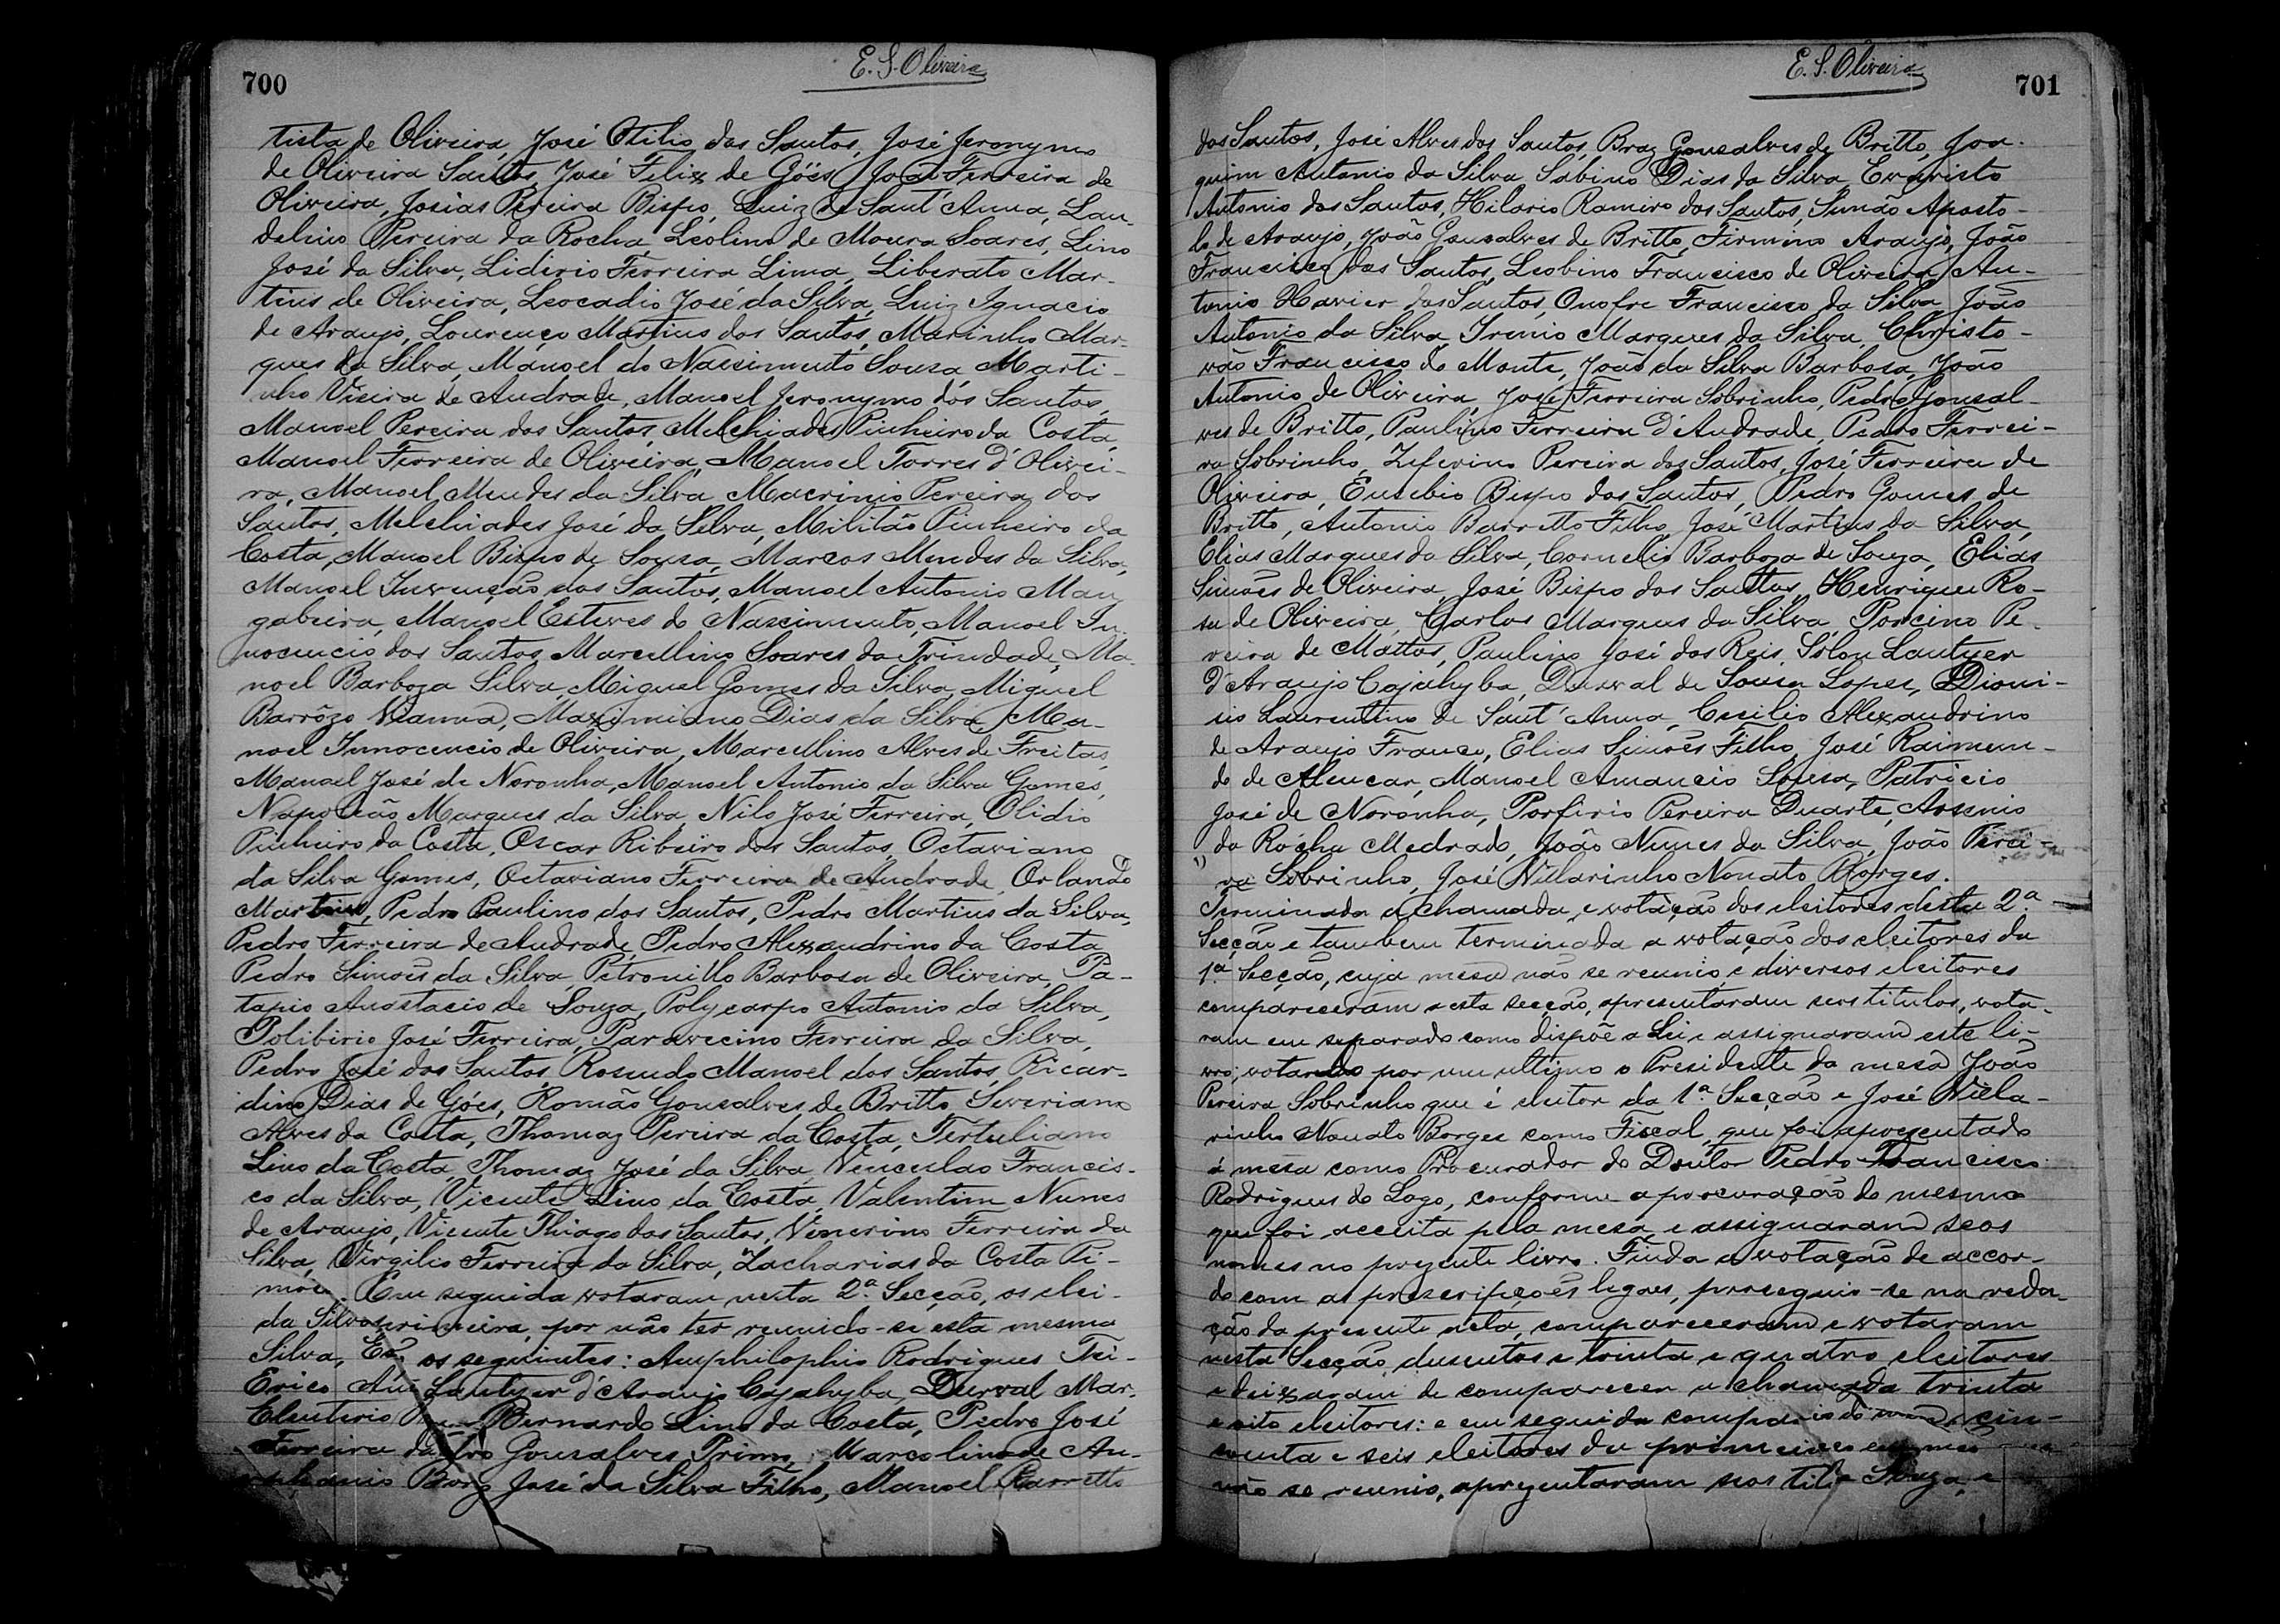 700
E. S. Oliveira
tista de Oliveira, José Otilio dos Santos, José Jeronymo
de Oliveira Santos, José Felix de Góes, João Ferreira de
Oliveira, Josias Pereira Bispo, Luiz de Sant'Anna, Lau-
delino Pereira da Rocha, Leolino de Moura Soares, Lino
José da Silva, Liderio Ferreira Lima, Liberato Mar-
tins de Oliveira, Leocadio José da Silva, Luiz Ignacio
de Araujo, Lourenço Martins dos Santos, Marinho Mar-
ques da Silva, Manoel do Nascimento Sousa, Marti-
nho Vieira de Andrade, Manoel Jeronymo dos Santos,
Manoel Pereira dos Santos, Melchiades Pinheiro da Costa,
Manoel Ferreira de Oliveira, Manoel Torres d'Olivei-
ra, Manoel Mendes da Silva, Macrinio Pereira dos
Santos, Melchiades José da Silva, Militão Pinheiro da
Costa, Manoel Bispo de Sousa, Marcos Mendes da Silva,
Manoel Invenção dos Santos, Manoel Antonio Man
gabeira, Manoel Esteves do Nascimento, Manoel In
nocencio dos Santos, Marcellino Soares da Trindade, Ma-
noel Barboza Silva, Miguel Gomes da Silva, Miguel
Barrôzo Vianna, Maximiano Dias da Silva, Ma-
noel Innocencio de Oliveira, Marcellino Alves de Freitas,
Manoel José de Noronha, Manoel Antonio da Silva Gomes,
Napoleão Marques da Silva, Nilo José Ferreira, Olidio
Pinheiro da Costa, Oscar Ribeiro dos Santos, Octaviano
da Silva Gomes, Octaviano Ferreira de Andrade, Orlando
Martins, Pedro Paulino dos Santos, Pedro Martins da Silva,
Pedro Ferreira de Andrade, Pedro Alexandrino da Costa
Pedro Simões da Silva, Petronillo Barbosa de Oliveira, Pa-
tapio Anastacio de Souza, Polycarpo Antonio da Silva,
Polibirio José Ferreira, Paravecino Ferreira da Silva,
Pedro José dos Santos, Rosendo Manoel dos Santos, Ricar-
dino Dias de Góes, Romão Gonsalves de Britto, Severiano
Alves da Costa, Thomaz Pereira da Costa, Tertuliano
Lino da Costa, Thomaz José da Silva, Venceslao Francis-
co da Silva, Vicente Lino da Costa, Valentim Nunes
de Araujo, Vicente Thiago dos Santos, Venerino Ferreira da
Silva, Virgilio Ferreira da Silva, Zacharias da Costa Pi-
Em seguida votaram nesta 2ª Secção, os elei-
da Silva primeira, por não ter reunido-se esta mesma
Silva, os seguintes: Amphilophio Rodrigues
Erico Lantyer d'Araujo Cajahyba, Durval Mar-
Eleuterio Bernardo Lino da Costa, Pedro José
Ferreira da Gonsalves Primo, Marcolino de An-
Borg José da Silva Filho, Manoel Barretto
E. S. Oliveira
701
dos Santos, José Alves dos Santos, Braz Gonsalves de Britto, Joa-
quim Antonio da Silva, Sabino Dias da Silva, Evaristo
Antonio dos Santos, Hilario Ramiro dos Santos, Simão Aposto-
lo de Araujo, João Gonsalves de Britto, Firmino Araujo, João
Francisco dos Santos, Leobino Francisco de Oliveira, An-
tonio Xavier dos Santos, Onofre Francisco da Silva, João
Antonio da Silva, Irenio Marques da Silva, Christo-
vão Francisco do Monte, João da Silva Barbosa, João
Antonio de Oliveira, José Ferreira Sobrinho, Pedro Gonsal-
ves de Britto, Paulino Ferreira d'Andrade, Pedro Ferrei-
ra Sobrinho, Zeferino Pereira dos Santos, José Ferreira de
Oliveira, Eusebio Bispo dos Santos, Pedro Gomes de
Britto, Antonio Barretto Filho, José Martins da Silva,
Elias Marques da Silva, Cornelio Barboza de Souza, Elias
Simões de Oliveira, José Bispo dos Santos, Henrique Ro-
sa de Oliveira, Carlos Marques da Silva, Porcino Pe-
reira de Mattos, Paulino José dos Reis, Sólon Lantyer
d'Araujo Cajahyba, Durval de Sousa Lopes, Dioni-
sio Laurentino de Sant'Anna, Cecilio Alexandrino
de Araujo Franco, Elias Simões Filho, José Raimun-
do de Alencar, Manoel Amancio Sousa, Patricio
José de Noronha, Porfirio Pereira Duarte, Arsenio
da Rocha Medrado, João Nunes da Silva, João Perei-
ra Sobrinho, José Villarinho Nonato Borges.
Terminada a chamada e votação dos eleitores desta 2.ª
Secção e tambem terminada a votação dos eleitores da
1ª Secção, cuja mesa não se reunio e diversos eleitores
compareceram a esta secção, apresentaram seos titulos, vota-
ram em separado como dispõe a Lei e assignaram este li-
vro; votando por um ultimo o Presidente da mesa João
Pereira Sobrinho que é eleitor da 1ª Secção e José Villa-
rinho Nonato Borges como Fiscal, que foi apresentado
á mesa como Procurador do Doutor Pedro Francisco
Rodrigues do Lago, conforme a procuração do mesmo
que foi acceita pela mesa e assignaram seos
nomes no prezente livro. Finda a votação de accor-
do com as prescripções legaes, proseguio-se na reda-
ção da presente acta, compareceram e votaram
nesta Secção, dusentos e trinta e quatro eleitores
e deixaram de comparecer a chamada trinta
e oito eleitores: e em seguida cin-
coenta e seis eleitores da primeira
não se reunio, aprezentaram seos Souza